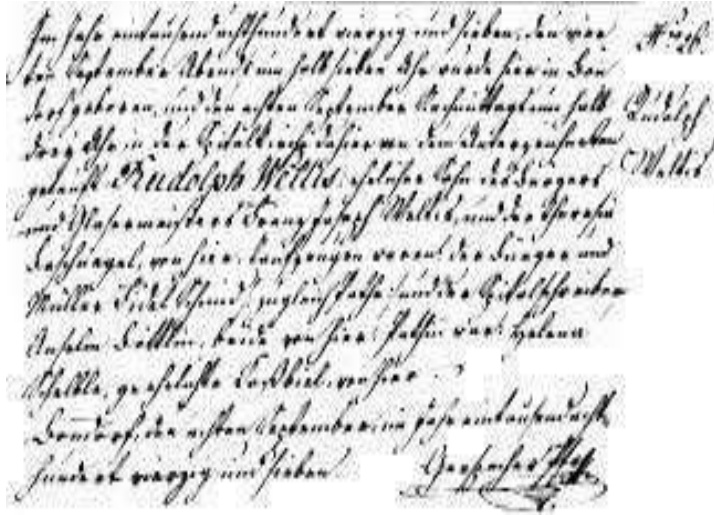 Im Jahr eintausend achthundert vierzig und sieben, den vier
ten September Abends um halb sieben Uhr wurde hier in Bon
dorf geboren, und den achten September Nachmittags um halb
drey Uhr in der Spitalkirche dahier von dem Unterzeichneten
getauft Rudolph Wellis, ehelicher Sohn des Bürgers
und Glasermeisters Franz Joseph Welkis, und der Theresia
von hier. Taufzeugen waren: der Bürger und
Müller Fidel Schmid, zugleich Pathe, und der Spitalschreiber
Anselm beide von hier. Pathin war: Helena
Schelble, geehelichte von hier.
Bondorf, den achten September, im Jahr eintausend acht
hundert vierzig und sieben.
Nro. 26.
Rudolph
Welkis